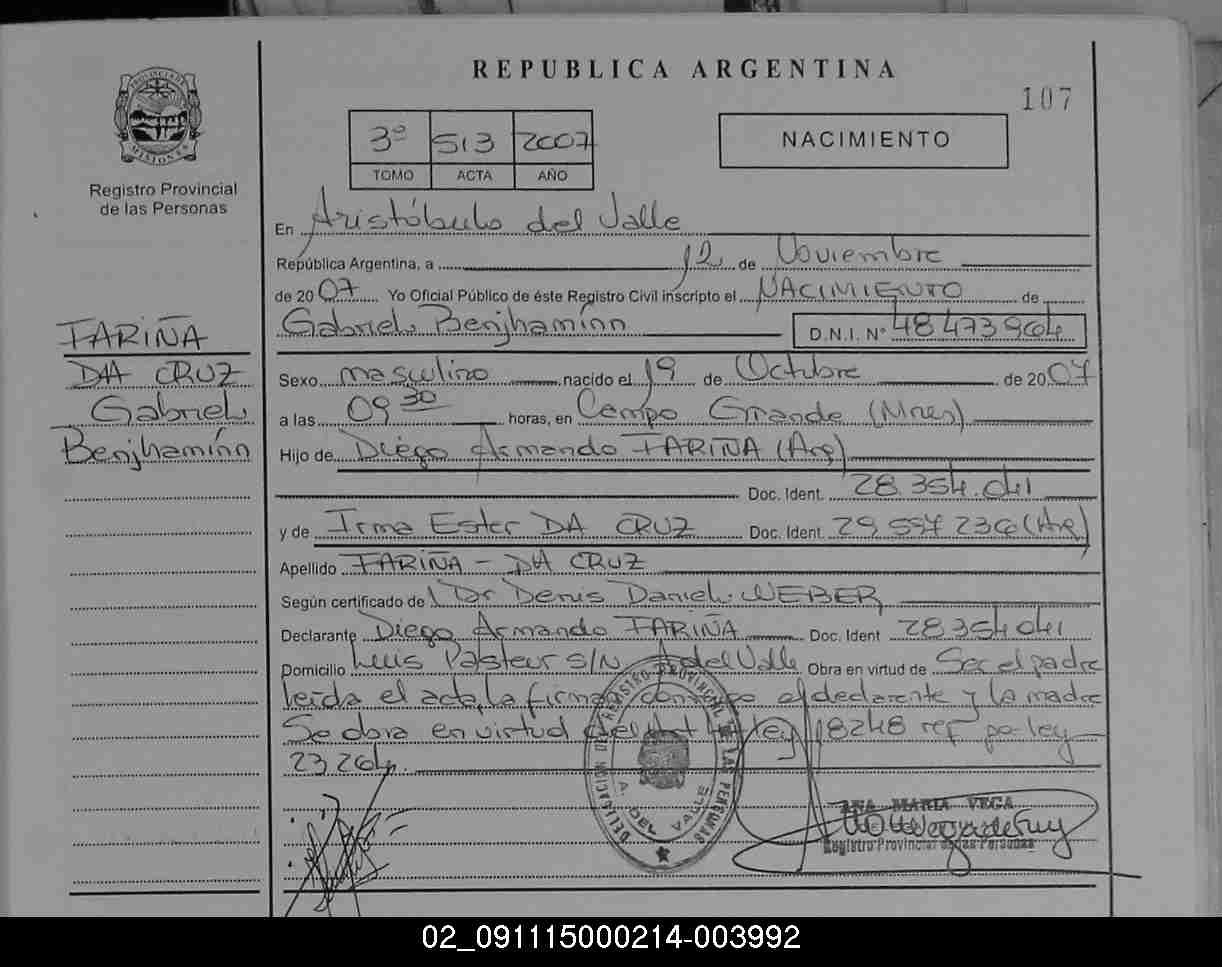 REPUBLICA ARGENTINA
107
PROVINCIA DE MISIONES
Registro Provincial
de las Personas
3º 513 2007
TOMO ACTA AÑO
NACIMIENTO
En Aristóbulo del Valle
República Argentina, a 12 de Noviembre
de 2007 Yo Oficial Público de éste Registro Civil inscripto el NACIMIENTO de
Gabriel Benjhamínn D.N.I. Nº 48473964
FARIÑA
DA CRUZ
Gabriel
Benjhamínn
Sexo masculino nacido el 19 de Octubre de 2007
a las 09 30 horas, en Campo Grande (Mnes)
Hijo de Diego Armando FARIÑA (Arg)
Doc. Ident. 28.354.041
y de Irma Ester DA CRUZ Doc. Ident. 29.557.236 (Arg)
Apellido FARIÑA - DA CRUZ
Según certificado de Dr Denis Daniel WEBER
Declarante Diego Armando FARIÑA Doc. Ident 28354041
Domicilio Luis Pasteur S/N A. del Valle Obra en virtud de Ser el padre
leída el acta, la firma conmigo el declarante y la madre
Se obra en virtud del Art ley 18248 ref po ley
23264.
DELEGACION DEL REGISTRO PROVINCIAL DE LAS PERSONAS
A. DEL VALLE
ANA MARIA VEGA
Registro Provincial de las Personas
02_091115000214-003992